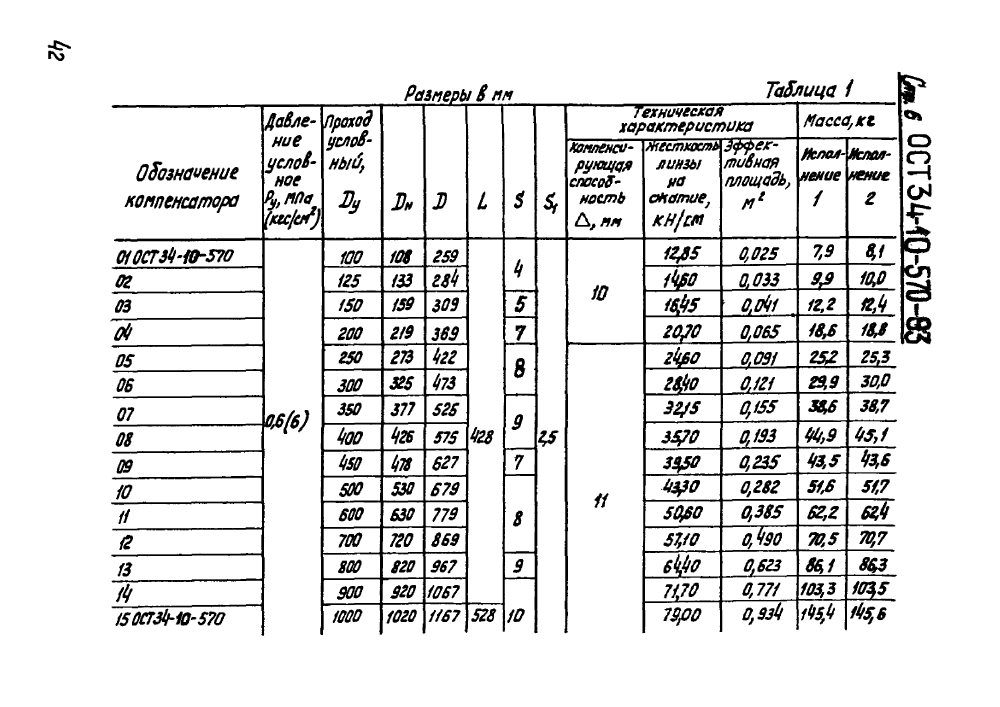 42
Стр. 6 ОСТ 34-10-570-83
Размеры в мм Таблица 1
Обозначение компенсатора
Давление условное Ру, мпа (кгс/см²)
Проход условный, Dу
Dн
D
L
S
S₁
Техническая характеристика
Компенсирующая способность △, мм
Жесткость линзы на сжатие, кН/см
Эффективная площадь, м²
Масса, кг
Исполнение 1
Исполнение 2
01 ОСТ 34-10-570 0,6(6) 100 108 259 428 4 2,5 10 12,85 0,025 7,9 8,1
02 125 133 284 14,60 0,033 9,9 10,0
03 150 159 309 5 16,45 0,041 12,2 12,4
04 200 219 369 7 20,70 0,065 18,6 18,8
05 250 273 422 8 11 24,60 0,091 25,2 25,3
06 300 325 473 28,40 0,121 29,9 30,0
07 350 377 525 9 32,15 0,155 38,6 38,7
08 400 426 575 35,70 0,193 44,9 45,1
09 450 478 627 7 39,50 0,235 43,5 43,6
10 500 530 679 8 43,30 0,282 51,6 51,7
11 600 630 779 50,60 0,385 62,2 62,4
12 700 720 869 57,10 0,490 70,5 70,7
13 800 820 967 9 64,40 0,623 86,1 86,3
14 900 920 1067 10 71,70 0,771 103,3 103,5
15 ОСТ 34-10-570 1000 1020 1167 528 79,00 0,934 145,4 145,6